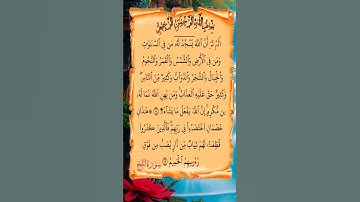 بِسْمِ اللَّهِ الرَّحْمَٰنِ الرَّحِيمِ
أَلَمْ تَرَ أَنَّ اللَّهَ يَسْجُدُ لَهُ مَن فِي السَّمَاوَاتِ
وَمَن فِي الْأَرْضِ وَالشَّمْسُ وَالْقَمَرُ وَالنُّجُومُ
وَالْجِبَالُ وَالشَّجَرُ وَالدَّوَابُّ وَكَثِيرٌ مِّنَ النَّاسِ
وَكَثِيرٌ حَقَّ عَلَيْهِ الْعَذَابُ وَمَن يُهِنِ اللَّهُ فَمَا لَهُ
مِن مُّكْرِمٍ إِنَّ اللَّهَ يَفْعَلُ مَا يَشَاءُ ۩ ۞ هَٰذَانِ
خَصْمَانِ اخْتَصَمُوا فِي رَبِّهِمْ فَالَّذِينَ كَفَرُوا
قُطِّعَتْ لَهُمْ ثِيَابٌ مِّن نَّارٍ يُصَبُّ مِن فَوْقِ
رُءُوسِهِمُ الْحَمِيمُ